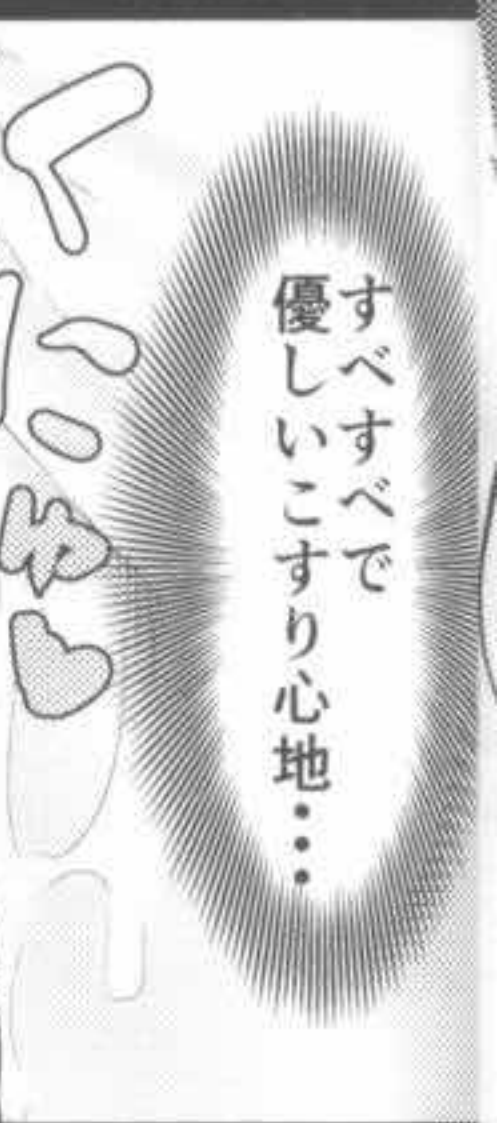 すべすべで
優しいこすり心地・・・
くにゅ